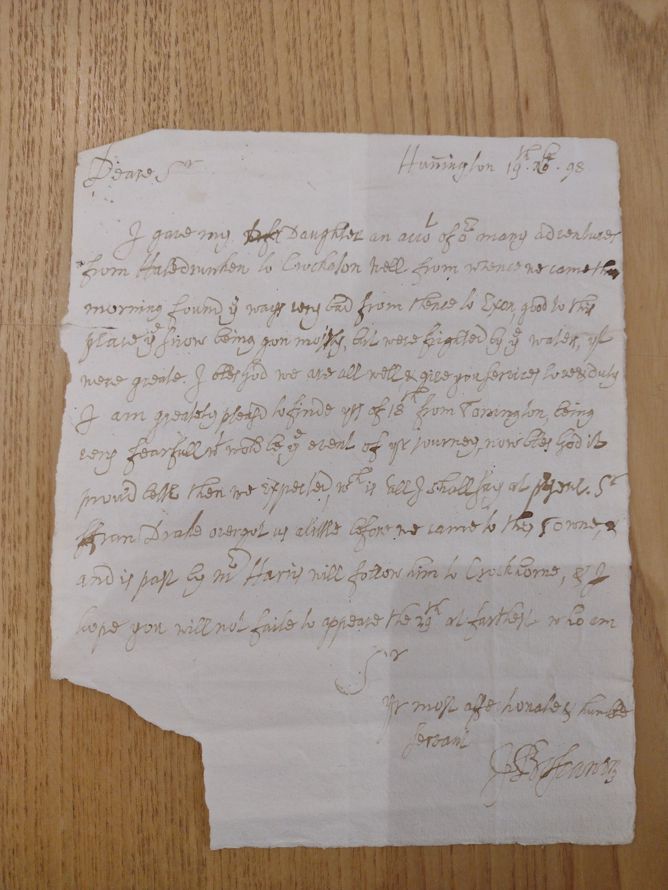 Deare Sr
Huñington 19th 98
I gave my Daughter an acco of or many adventures
from Hatedrunken to Crockalon well from whence we came this
morning found ye ways very bad from thence to Exon good to this
place ye snow being gon mostly, but were frighted by ye waters, yt
were greate. I bles God we are all well & give you services love & duty
I am greately pleasd to finde yrs of 18th from Torrington, being
very fearfull wt wold be ye event of yr Journey, now bles God it
proud beter then we expected, wch is all I shall say at psent. Sr
ffran Drake overgot us a litle before we came to this Towne, &
and is past by mr Haris will follow him to Crockhorne, & I
hope you will not faile to appeare the 29th at farthest who am
Sr
yr most affectionate & humble
servant